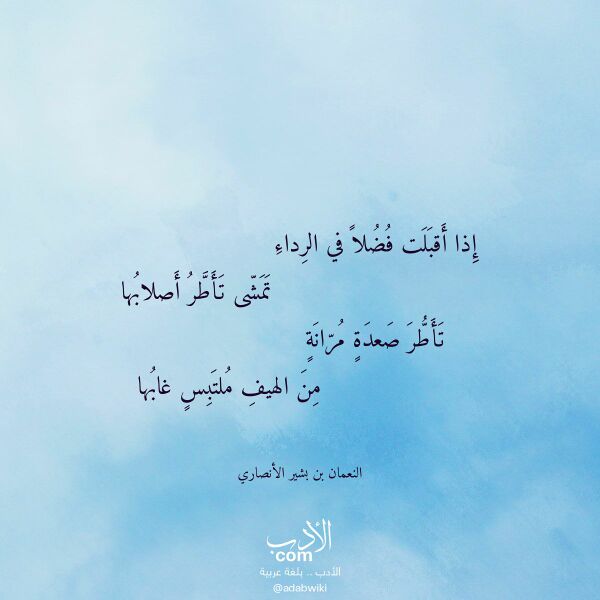 إِذا أَقبَلَت فُضُلاً في الرِداءِ
تَمَشّى تَأَطَّرُ أَصلابُها
تَأَطُّرَ صَعدَةٍ مُرّانَةٍ
مِنَ الهيفِ مُلتَبِسٍ غابُها
النعمان بن بشير الأنصاري
الأدب
com
الأدب .. بلغة عربية
@adabwiki